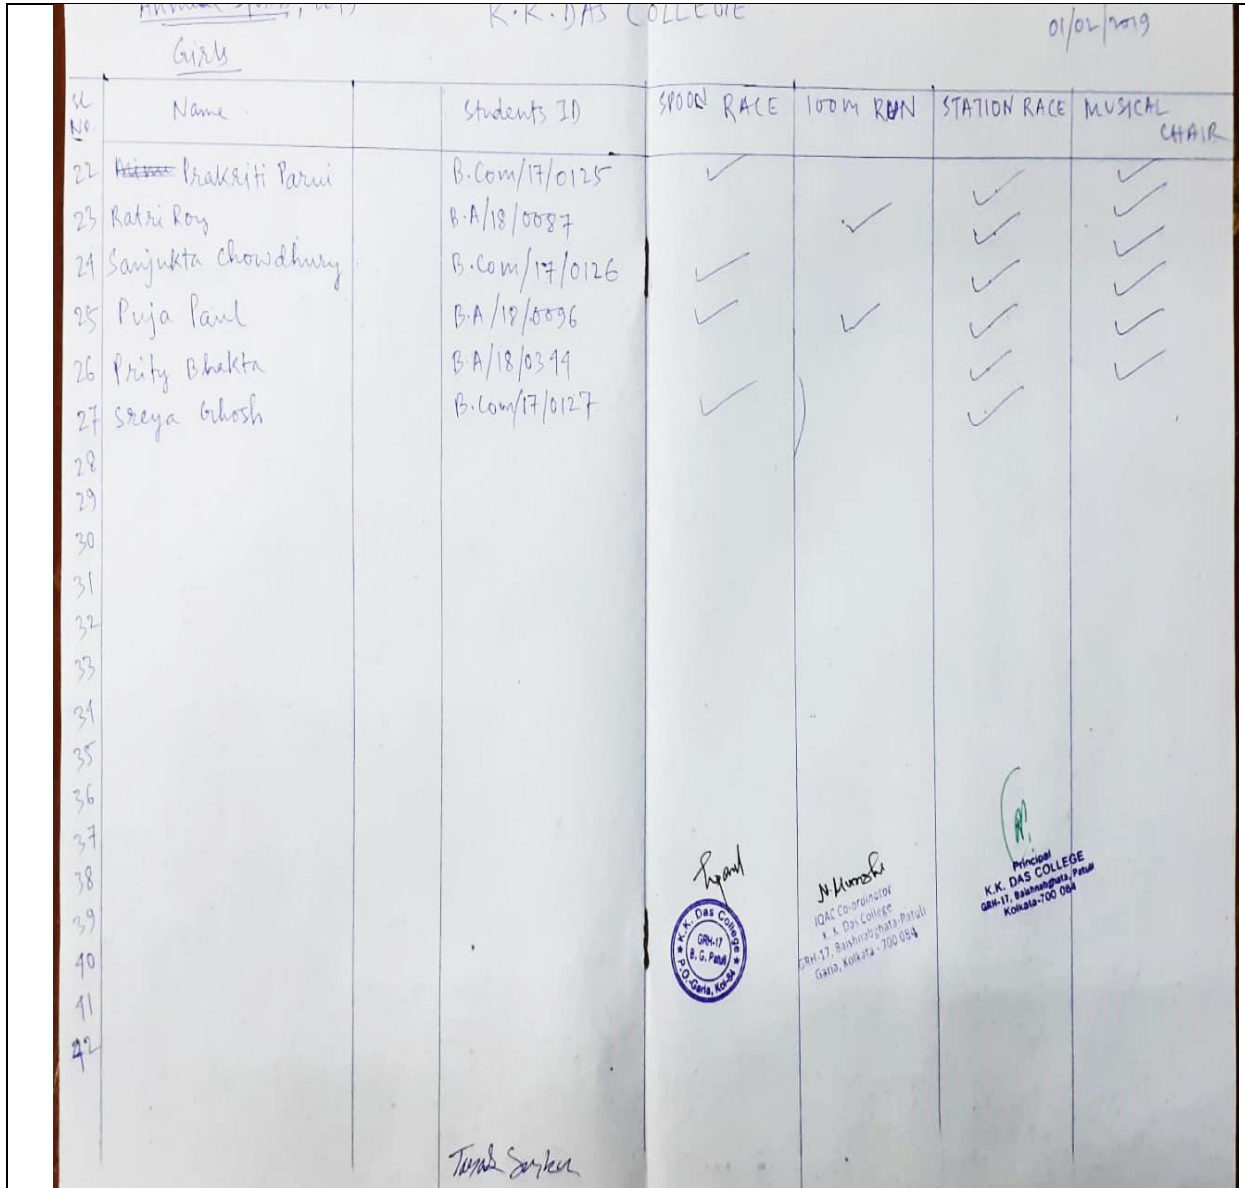 Annual Sports, 2019 K.K. DAS COLLEGE 01/02/2019
Girls
SL No. Name Students ID SPOON RACE 100m RUN STATION RACE MUSICAL CHAIR
22 Prakriti Parui B.Com/17/0125 ✓ ✓ ✓
23 Ratri Roy B.A/18/0087 ✓ ✓ ✓
24 Sanjukta Chowdhury B.Com/17/0126 ✓ ✓ ✓
25 Puja Paul B.A/18/0096 ✓ ✓ ✓ ✓
26 Prity Bhakta B.A/18/0344 ✓ ✓
27 Sreya Ghosh B.Com/17/0127 ✓ ✓ ✓
28
29
30
31
32
33
34
35
36
37
38
39
40
41
42
K.K. Das College
GRH-17
B. G. Patuli
P.O.-Garia, Kol-84
N. Munshi
IQAC Co-ordinator
K. K. Das College
GRH-17, Baishnabghata-Patuli
Garia, Kolkata - 700 084
Principal
K.K. DAS COLLEGE
GRH-17, Baishnabghata, Patuli
Kolkata-700 084